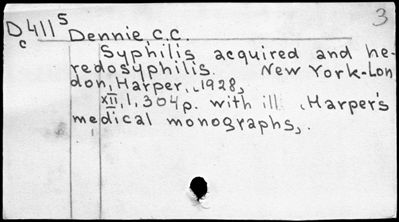 3
Dc411S Dennie, C.C.
Syphilis acquired and he-
redosyphilis. New York-Lon
don, Harper, 1928,
XII, 1, 304p. with ill. (Harper's
medical monographs).